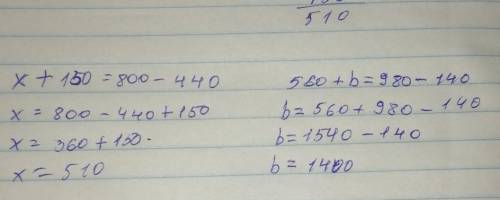 510
x + 150 = 800 - 440
x = 800 - 440 + 150
x = 360 + 150.
x = 510
560 + b = 980 - 140
b = 560 + 980 - 140
b = 1540 - 140
b = 1400